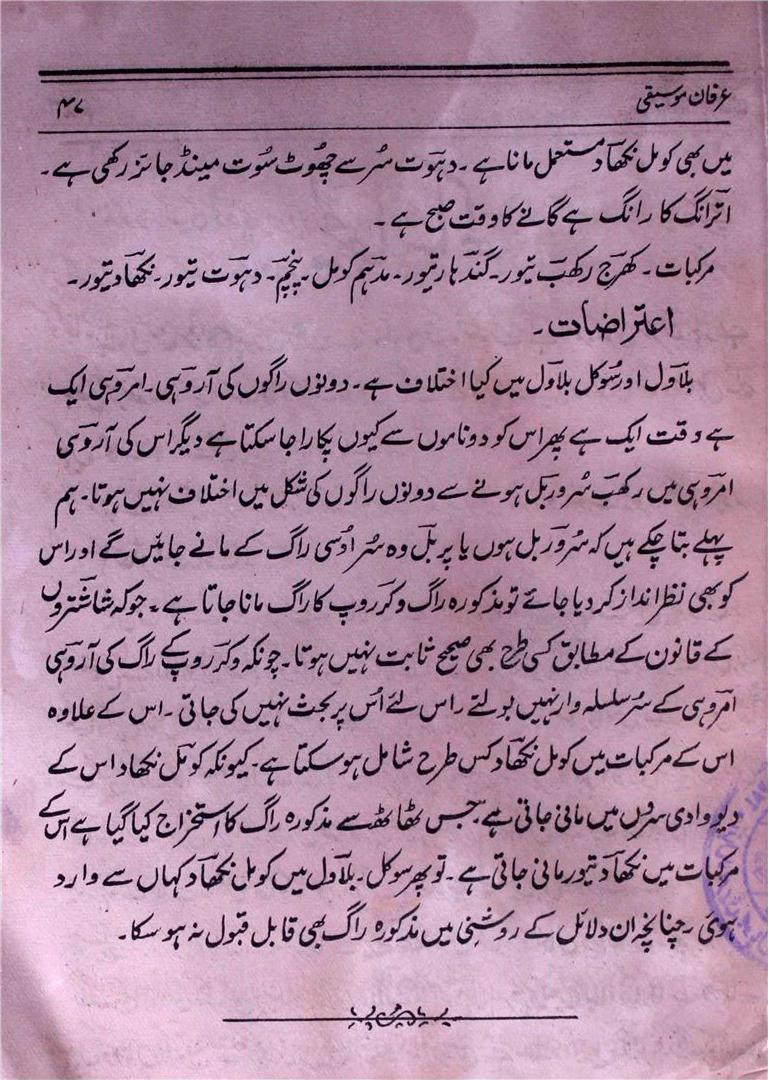 عرفان موسیقی
۴۷
میں بھی کومل نکھاد مستعمل مانا ہے ۔ دہوت سُر سے چھُوٹ سُوت مینڈ جائز رکھی ہے ۔
اترانگ کا رانگ ہے گانے کا وقت صبح ہے ۔
مرکبات ۔ کھرج رکھب تیور ۔ گندہار تیور ۔ مدہم کومل ۔ پنچم ۔ دہوت تیور ۔ نکھاد تیور ۔
اعتراضات ۔
بلاول اور سُوکل بلاول میں کیا اختلاف ہے ۔ دونوں راگوں کی آروہی ۔ امروہی ایک
ہے وقت ایک ہے پھر اس کو دو ناموں سے کیوں پکارا جا سکتا ہے دیگر اس کی آروہی
امروہی میں رکھب سُر وربل ہونے سے دونوں راگوں کی شکل میں اختلاف نہیں ہوتا ۔ ہم
پہلے بتا چکے ہیں کہ سُر وربل ہوں یا پربل وہ سُر اُدسی راگ کے مانے جائیں گے اور اس
کو بھی نظر انداز کر دیا جائے تو مذکورہ راگ وکر روپ کا راگ مانا جاتا ہے ۔ جو کہ شاشتروں
کے قانون کے مطابق کسی طرح بھی صحیح ثابت نہیں ہوتا ۔ چونکہ وکر روپ کے راگ کی آروہی
امروہی کے سُر سلسلہ وار نہیں بولتے ۔ اس لئے اُس پر بحث نہیں کی جاتی ۔ اس کے علاوہ
اس کے مرکبات میں کومل نکھاد کس طرح شامل ہو سکتا ہے ۔ کیونکہ کومل نکھاد اس کے
دیو وادی سروں میں مانی جاتی ہے جس ٹھاٹھ سے مذکورہ راگ کا استخراج کیا گیا ہے اس کے
مرکبات میں نکھاد تیور مانی جاتی ہے ۔ تو پھر سوکل ۔ بلاول میں کومل نکھاد کہاں سے وارد
ہوئی ۔ چنانچہ ان دلائل کے روشنی میں مذکورہ راگ بھی قابل قبول نہ ہو سکا ۔